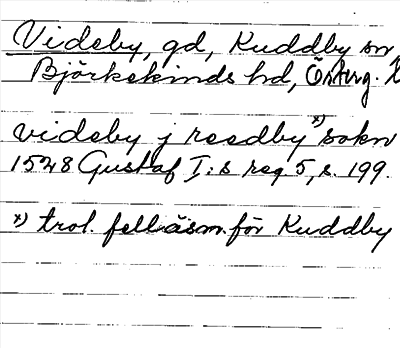 Videby, gd, Kuddby sn
Björkekinds hd, Östերg. l
videby j reedby x) sokn
1528 Gustaf I:s reg 5, s. 199.
x) trol. felläsn. för Kuddby